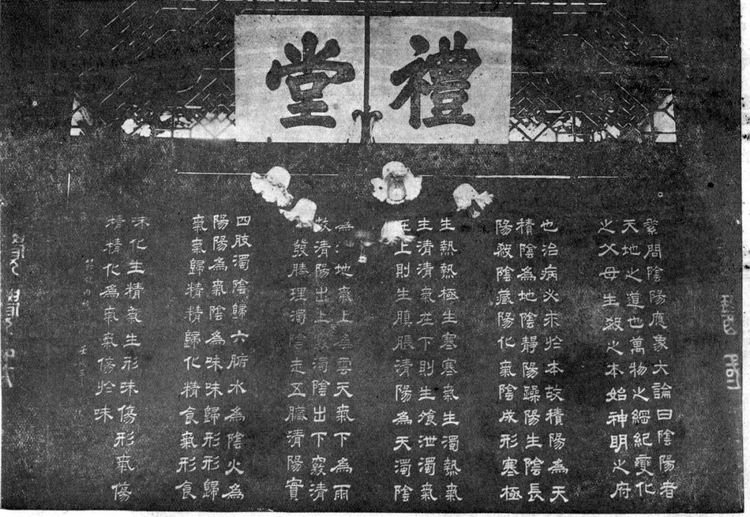 禮堂
素問陰陽應象大論曰陰陽者
天地之道也萬物之綱紀變化
之父母生殺之本始神明之府
也治病必求於本故積陽為天
積陰為地陰靜陽躁陽生陰長
陽殺陰藏陽化氣陰成形寒極
生熱熱極生寒寒氣生濁熱氣
生清清氣在下則生飧泄濁氣
在上則生䐜脹清陽為天濁陰
為地氣上為雲天氣下為雨
故清陽出上竅濁陰出下竅清
發腠理濁陰走五臟清陽實
四肢濁陰歸六腑水為陰火為
陽陽為氣陰為味味歸形形歸
氣氣歸精精歸化精食氣形食
味化生精氣生形味傷形氣傷
精精化為氣氣傷於味